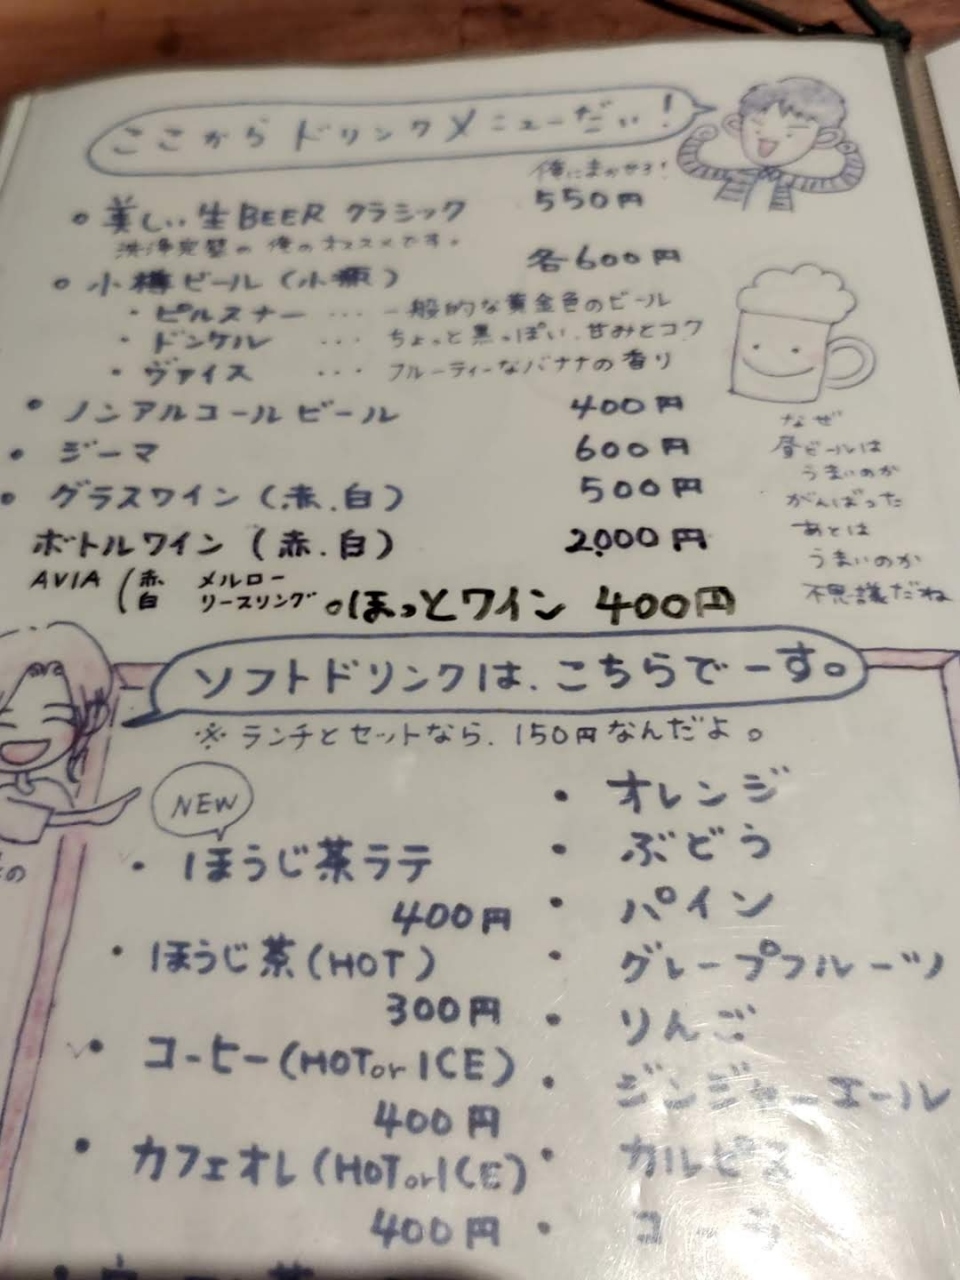 ここからドリンクメニューだい!
俺にまかせろ!
• 美しい生BEER クラシック 550円
洗浄完璧の俺のオススメです。
• 小樽ビール(小瓶) 各600円
・ピルスナー … 一般的な黄金色のビール
・ドンケル … ちょっと黒っぽい、甘みとコク
・ヴァイス … フルーティーなバナナの香り
• ノンアルコールビール 400円
• ジーマ 600円
• グラスワイン(赤.白) 500円
ボトルワイン(赤.白) 2000円
AVIA(赤、メルロー
白 リースリング
。ほっとワイン 400円
なぜ
昼ビールは
うまいのか
がんばった
あとは
うまいのか
不思議だね
ソフトドリンクは、こちらでーす。
※ランチとセットなら、150円なんだよ。
NEW
• ほうじ茶ラテ
400円
• ほうじ茶(HOT)
300円
• コーヒー(HOTorICE)
400円
• カフェオレ(HOTorICE)
400円
• オレンジ
• ぶどう
• パイン
• グレープフルーツ
• りんご
• ジンジャーエール
• カルピス
• コーラ